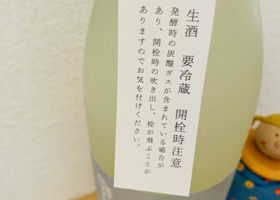 生酒　要冷蔵　開栓時注意
発酵時の炭酸ガスが含まれている場合が
あり、開栓時の吹き出し、栓が飛ぶことが
ありますのでお気を付けください。